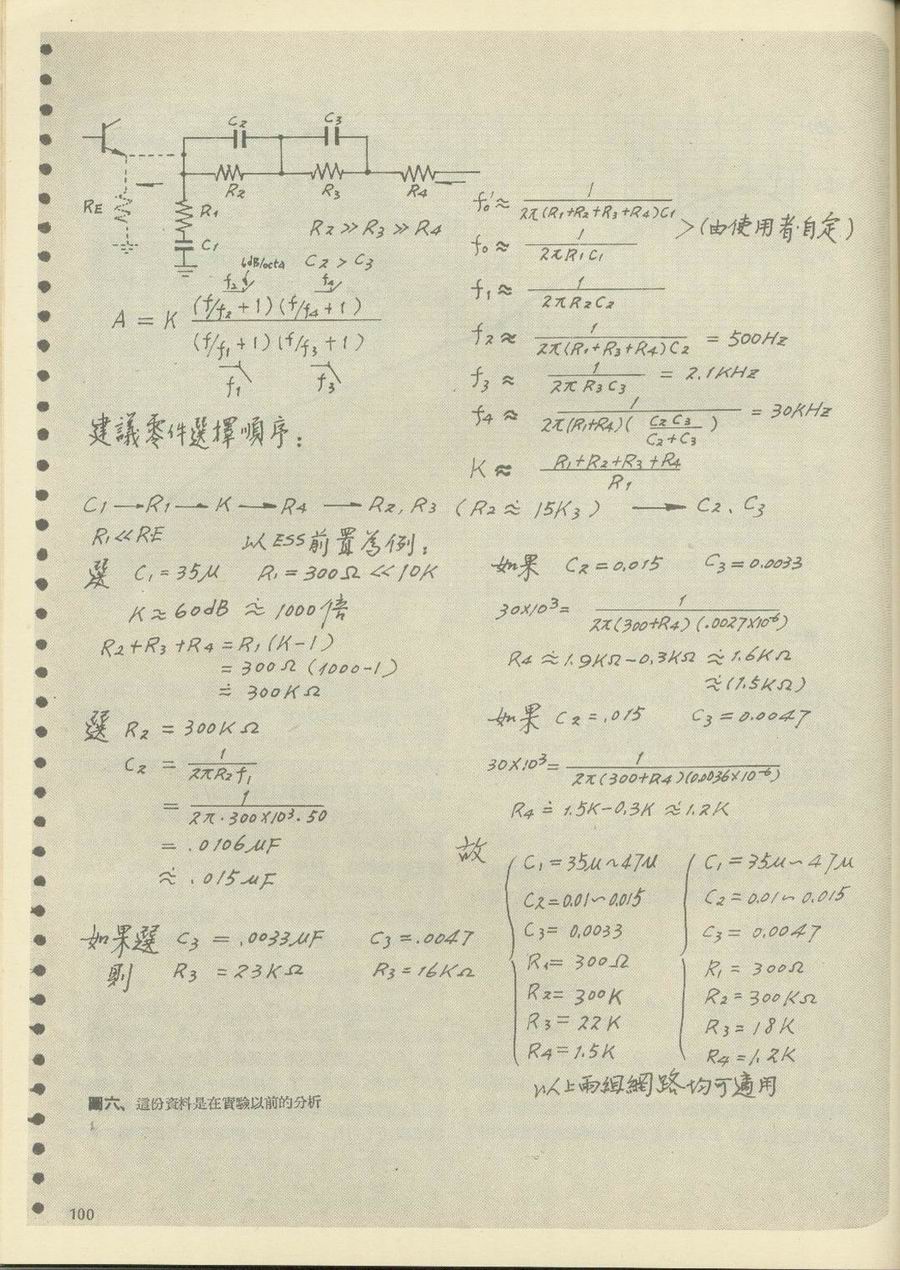 C2 C3
R2 R3 R4
RE
R1
C1
R2 >> R3 >> R4
6dB/octa C2 > C3
f2 f4
A = K (f/f2 + 1) (f/f4 + 1) / (f/f1 + 1) (f/f3 + 1)
f1 f3
建議零件選擇順序:
f0' ≈ 1 / 2π(R1+R2+R3+R4)C1
f0 ≈ 1 / 2πR1C1
>(由使用者自定)
f1 ≈ 1 / 2πR2C2
f2 ≈ 1 / 2π(R1+R3+R4)C2 = 500Hz
f3 ≈ 1 / 2πR3C3 = 2.1KHz
f4 ≈ 1 / 2π(R1+R4)( C2C3 / C2+C3 ) = 30KHz
K ≈ R1+R2+R3+R4 / R1
C1 → R1 → K → R4 → R2, R3 (R2 ≈ 15K3) → C2、C3
R1 << RE 以ESS前置為例:
選 C1 = 35μ R1 = 300Ω << 10K
K ≈ 60dB ≈ 1000倍
R2+R3+R4 = R1(K-1)
= 300Ω (1000-1)
≐ 300KΩ
選 R2 = 300KΩ
C2 = 1 / 2πR2f1
= 1 / 2π·300×10³·50
= .0106μF
≈ .015μF
如果選 C3 = .0033μF C3 = .0047
則 R3 = 23KΩ R3 = 16KΩ
如果 C2 = 0.015 C3 = 0.0033
30×10³ = 1 / 2π(300+R4)(.0027×10⁻⁶)
R4 ≈ 1.9KΩ-0.3KΩ ≈ 1.6KΩ
≈ (1.5KΩ)
如果 C2 = .015 C3 = 0.0047
30×10³ = 1 / 2π(300+R4)(0.0036×10⁻⁶)
R4 ≐ 1.5K-0.3K ≈ 1.2K
故
C1 = 35μ~47μ C1 = 35μ~47μ
C2 = 0.01~0.015 C2 = 0.01~0.015
C3 = 0.0033 C3 = 0.0047
R1 = 300Ω R1 = 300Ω
R2 = 300K R2 = 300KΩ
R3 = 22K R3 = 18K
R4 = 1.5K R4 = 1.2K
以上兩組網路均可適用
圖六、這份資料是在實驗以前的分析
100